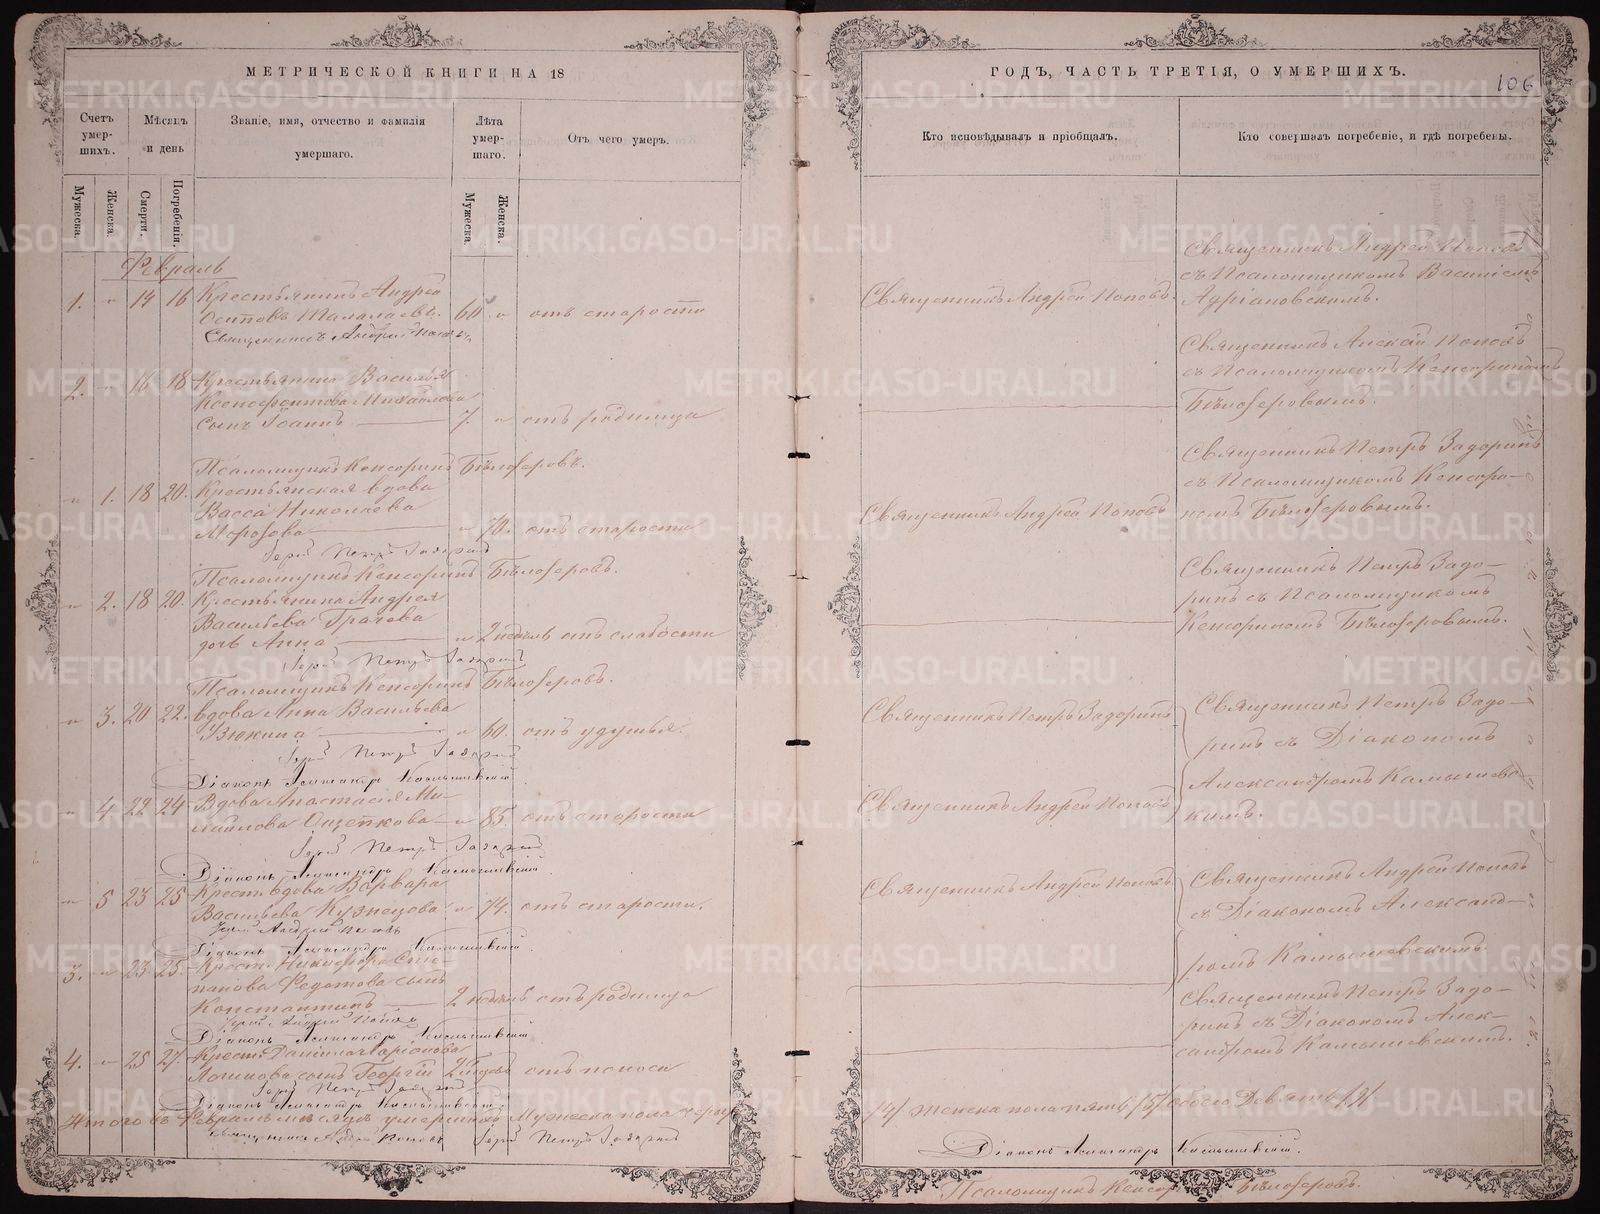 МЕТРИЧЕСКОЙ КНИГИ НА 18
Счетъ умер- шихъ.
Мѣсяцъ и день
Званіе, имя, отчество и фамилія умершаго.
Лѣта умер- шаго.
Отъ чего умеръ.
Мужеска.
Женска.
Смерти.
Погребенія.
Мужеска.
Женска.
Февраль
1. " 14 16 Крестьянинъ Андрей
Осиповъ Талалаевъ. 60 " отъ старости
Священникъ Андрей Поповъ
2. " 16 18 Крестьянина Василія
Ксенофонтова Михайлова
сынъ Іоаннъ 7. " отъ родимца
Псаломщикъ Кенсоринъ Бѣлозеровъ.
" 1. 18 20. Крестьянская вдова
Васса Николаева
Морозова " 70. отъ старости
Іерей Петръ Задоринъ
Псаломщикъ Кенсоринъ Бѣлозеровъ.
" 2. 18 20. Крестьянина Андрея
Васильева Грачева
дочь Анна " 2 недѣль отъ слабости
Іерей Петръ Задоринъ
Псаломщикъ Кенсоринъ Бѣлозеровъ.
" 3. 20 22. вдова Анна Васильева
" 60. отъ удушья.
Іерей Петръ Задоринъ
Діаконъ Александръ Камышевскій
" 4. 22 24 Вдова Анастасія Ми-
хайлова Ощепкова " 85. отъ старости
Іерей Петръ Задоринъ
Діаконъ Александръ Камышевскій.
" 5 23 25 Крест. вдова Варвара
Васильева Кузнецова " 74. отъ старости.
Іерей Андрей Поповъ
Діаконъ Александръ Камышевскій.
3. " 23 25. Крест. Никифора Сте-
панова Федотова сынъ
Константинъ 2 недѣль отъ родимца
Іерей Андрей Поповъ
Діаконъ Александръ Камышевскій
4. " 25 27. Крест. Даніила Ларіонова
сынъ Георгій отъ поноса
Іерей Петръ Задоринъ
Діаконъ Александръ Камышевскій.
Итого въ Февралѣ мѣсяцѣ умершихъ Мужеска пола четыре
Священникъ Андрей Поповъ Іерей Петръ Задоринъ
ГОДЪ, ЧАСТЬ ТРЕТІЯ, О УМЕРШИХЪ.
106
Кто исповѣдывалъ и пріобщалъ.
Кто совершалъ погребеніе, и гдѣ погребены.
Священникъ Андрей Поповъ
съ Псаломщикомъ Василіемъ
Священникъ Андрей Поповъ. Адріановскимъ.
Священникъ Алексій Поповъ
съ Псаломщикомъ Кенсориномъ
Бѣлозеровымъ.
Священникъ Петръ Задоринъ
съ Псаломщикомъ Кенсори-
Священникъ Андрей Поповъ номъ Бѣлозеровымъ.
Священникъ Петръ Задо-
ринъ съ Псаломщикомъ
Кенсориномъ Бѣлозеровымъ.
Священникъ Петръ Задоринъ Священникъ Петръ Задо-
ринъ съ Діакономъ
Александромъ Камышевс-
Священникъ Андрей Поповъ кимъ.
Священникъ Андрей Поповъ Священникъ Андрей Поповъ
съ Діакономъ Александ-
ромъ Камышевскимъ.
Священникъ Петръ Задо-
ринъ съ Діакономъ Алек-
сандромъ Камышевскимъ.
/4/ женска пола пять /5/ обоего Девять /9/
Діаконъ Александръ Камышевскій.
Псаломщикъ Кенсоринъ Бѣлозеровъ.
METRIKI.GASO-URAL.RU